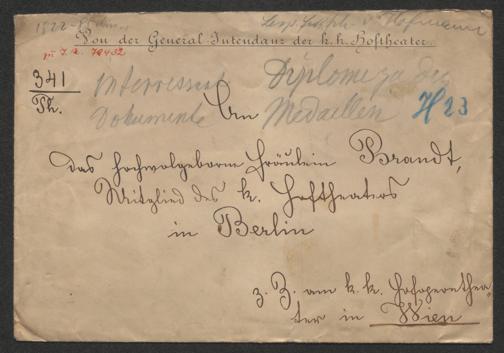 Von der General-Intendanz der k.k. Hoftheater.
341
Th.
Interessante
Dokumente
Diplome zu den
Medaillen
H 23
An
das hochwolgeborne Fräulein Brandt,
Mitglied des k. Hoftheaters
in Berlin
z. Z. am k.k. Hofoperenthea-
ter in Wien